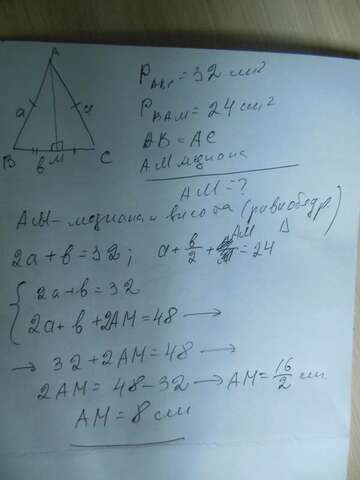 A
a
a
B
в
M
C
P ABC = 32 см²
P BAM = 24 см²
AB = AC
AM медиана
AM = ?
AM - медиана и высота (равнобедр. Δ
2a + в = 32; a + в/2 + AM = 24
{ 2a + в = 32
2a + в + 2AM = 48 →
→ 32 + 2AM = 48 →
2AM = 48 - 32 → AM = 16/2 см
AM = 8 см